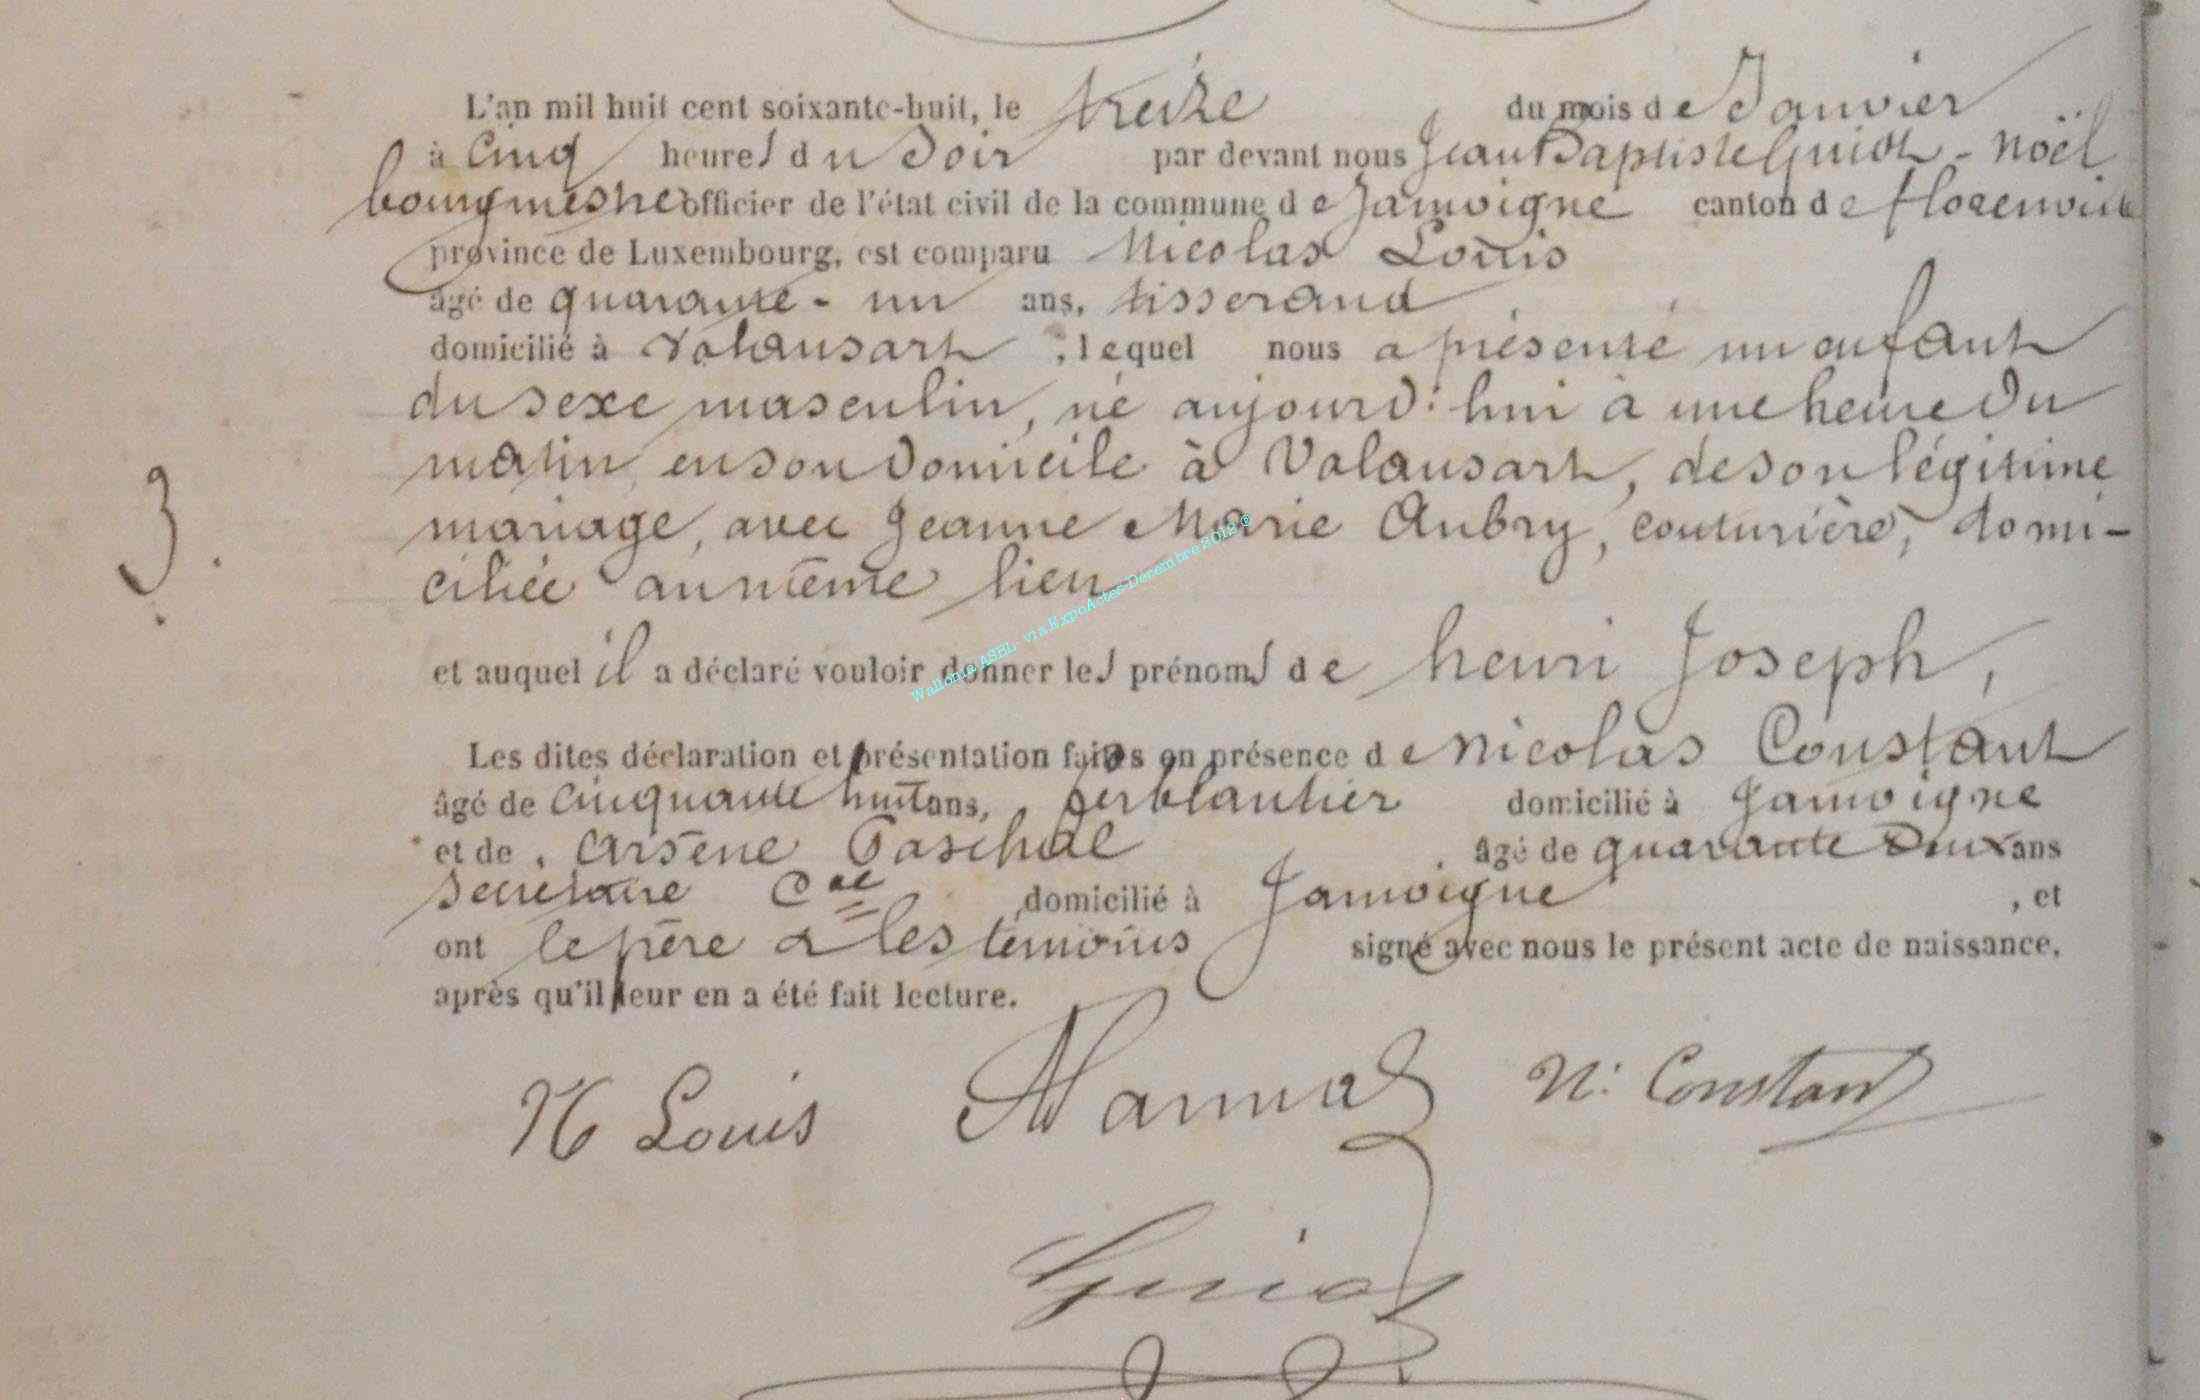 L'an mil huit cent soixante-huit, le treize du mois de Janvier
à cinq heures du Soir par devant nous Jean Baptiste Guiot-noël
bourgmestre officier de l'état civil de la commune de Jamoigne canton de florenville
province de Luxembourg, est comparu Nicolas Louis
âgé de quarante-un ans, tisserand
domicilié à Valansart, lequel nous a présenté un enfant
du sexe masculin, né aujourd'hui à une heure du
matin, en son domicile à Valansart, de son légitime
mariage, avec Jeanne Marie Aubry, couturière, domi-
3.
ciliée au même lieu
et auquel il a déclaré vouloir donner les prénoms de henri Joseph,
Les dites déclaration et présentation faites en présence de Nicolas Constant
âgé de cinquante huit ans, ferblantier domicilié à Jamoigne
et de Arsène Paschal âgé de quarante Deux ans
Secrétaire Cal domicilié à Jamoigne, et
ont le père & les témoins signé avec nous le présent acte de naissance,
après qu'il leur en a été fait lecture.
N Louis N. Constant
Guiot
Wallonia ASBL via ExpoActes Décembre 2012 ©